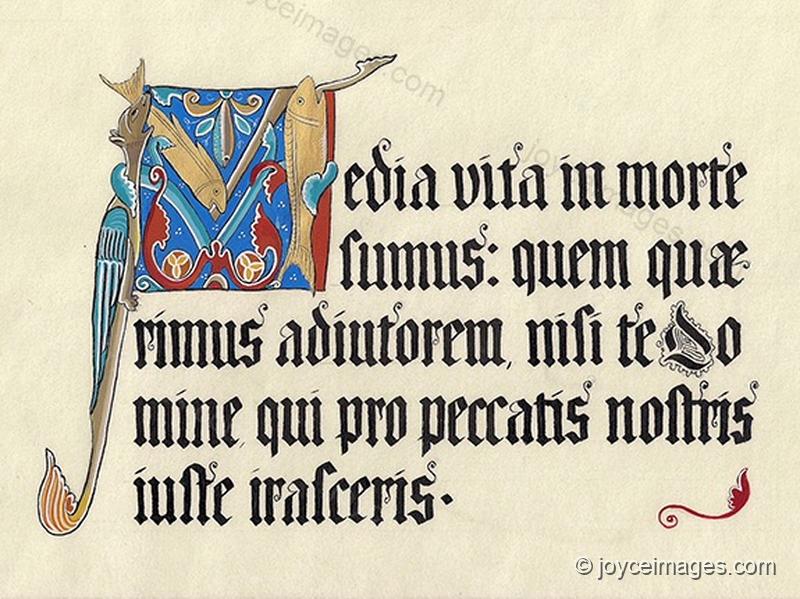 joyceimages.com
Media vita in morte
joyceimages.com
ſumus: quem quæ
rimus adiutorem, niſi te Do
mine, qui pro peccatis noſtris
iuſte iraſceris.
© joyceimages.com